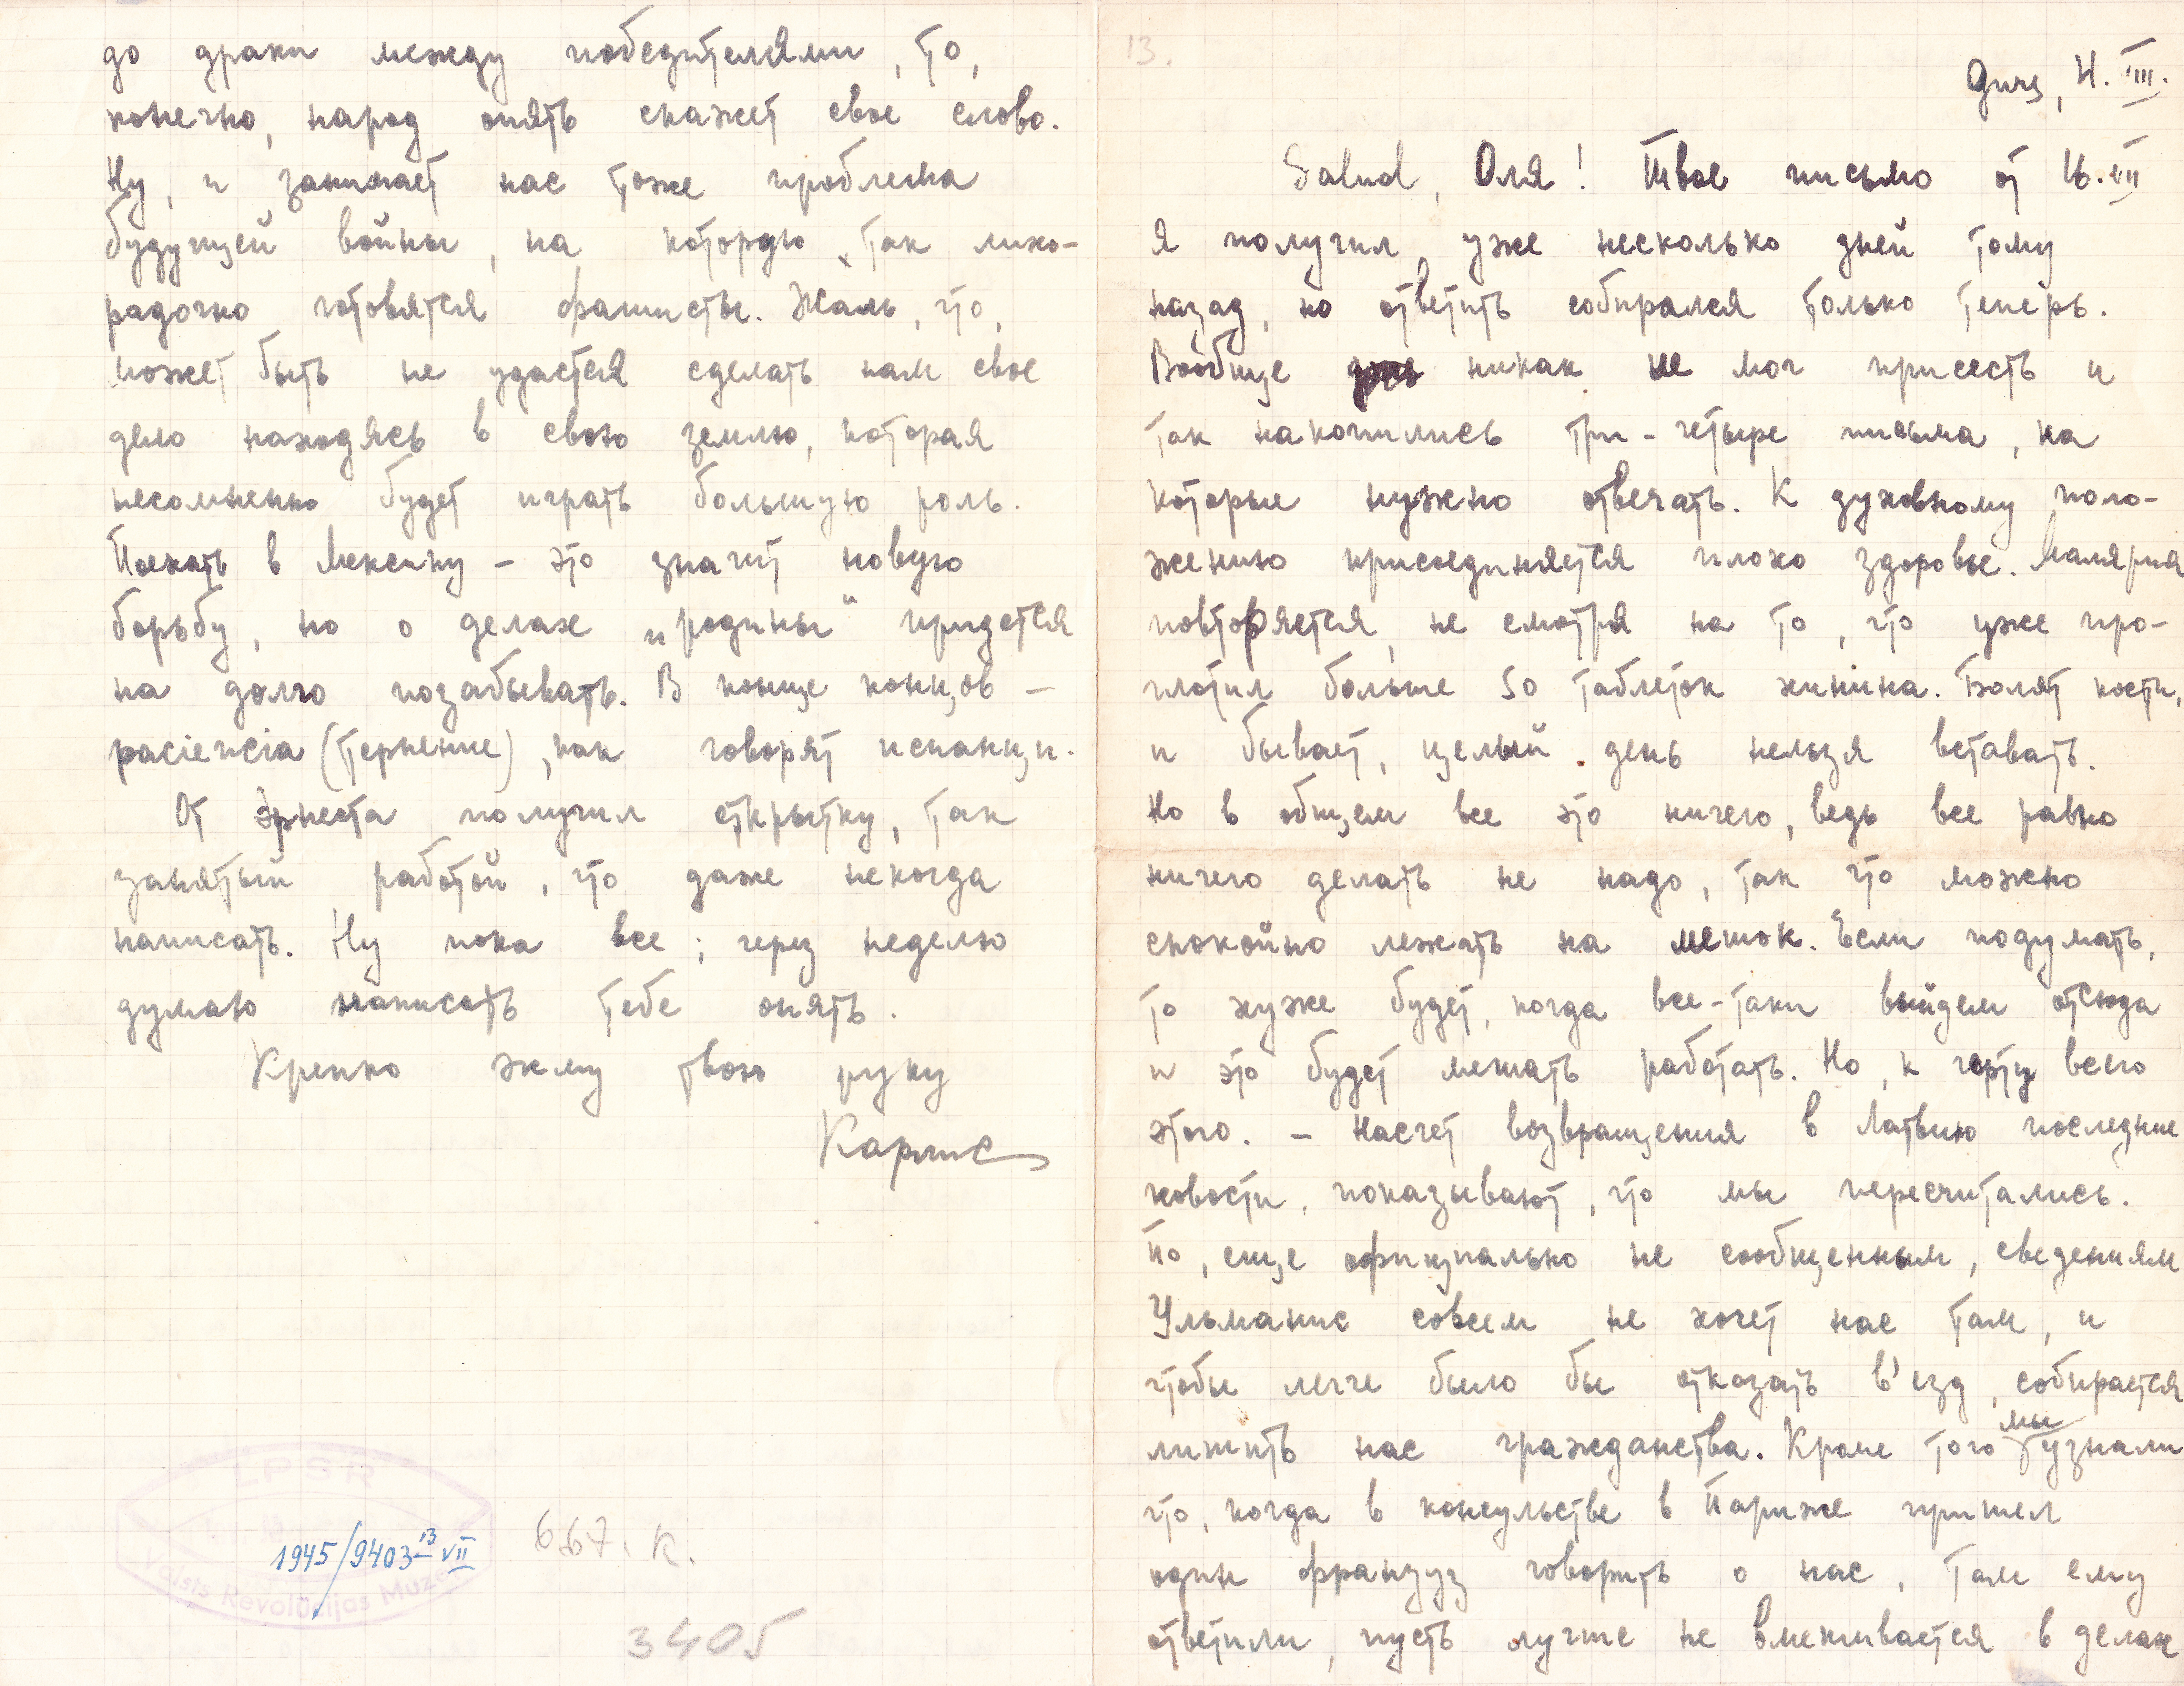 13.
Gurs, 4. VIII.
Salud, Оля! Твое письмо от 16.VII
я получил уже несколько дней тому
назад, но ответить собирался только теперь.
Вообще никак не мог присесть и
так накопились три-четыре письма, на
которые нужно отвечать. К духовному поло-
жению присоединяется плохо здоровье. Малярия
повторяется, не смотря на то, что уже про-
глотил больше 50 таблеток хинина. Болят кости,
и бывает, целый день нельзя вставать.
Но в общем все это ничего, ведь все равно
ничего делать не надо, так что можно
спокойно лежать на мешок. Если подумать,
то хуже будет, когда все-таки выйдем отсюда
и это будет мешать работать. Но, к чорту всего
этого. – Насчет возвращения в Латвию последние
новости, показывают, что мы пересчитались.
По, еще официально не сообщенным, сведениям
Ульманис совсем не хочет нас там, и
чтобы легче было бы отказать в'езд, собирается
лишить нас гражданства. Кроме того мы узнали
что, когда в консульстве в Париже пришел
один француз говорить о нас, там ему
ответили, пусть лучше не вмешивается в делах
до драки между победителями, то,
конечно, народ опять скажет свое слово.
Ну, и занимает нас тоже проблема
будущей войны, на которую так лихо-
радочно готовятся фашисты. Жаль, что,
может быть не удастся сделать нам свое
дело находясь в свою землю, которая
несомненно будет играть большую роль.
Поехать в Мексику – это значит новую
борьбу, но о делах „родины“ придется
на долго позабывать. В конце концов –
paciencia (терпение), как говорят испанцы.
От Эрнеста получил открытку, так
занятый работой, что даже некогда
написать. Ну пока все; через неделю
думаю написать тебе опять.
Крепко жму твою руку
Карлис
LPSR
Valsts Revolūcijas Muzejs
1945/9403-13 VII
667. К.
3405